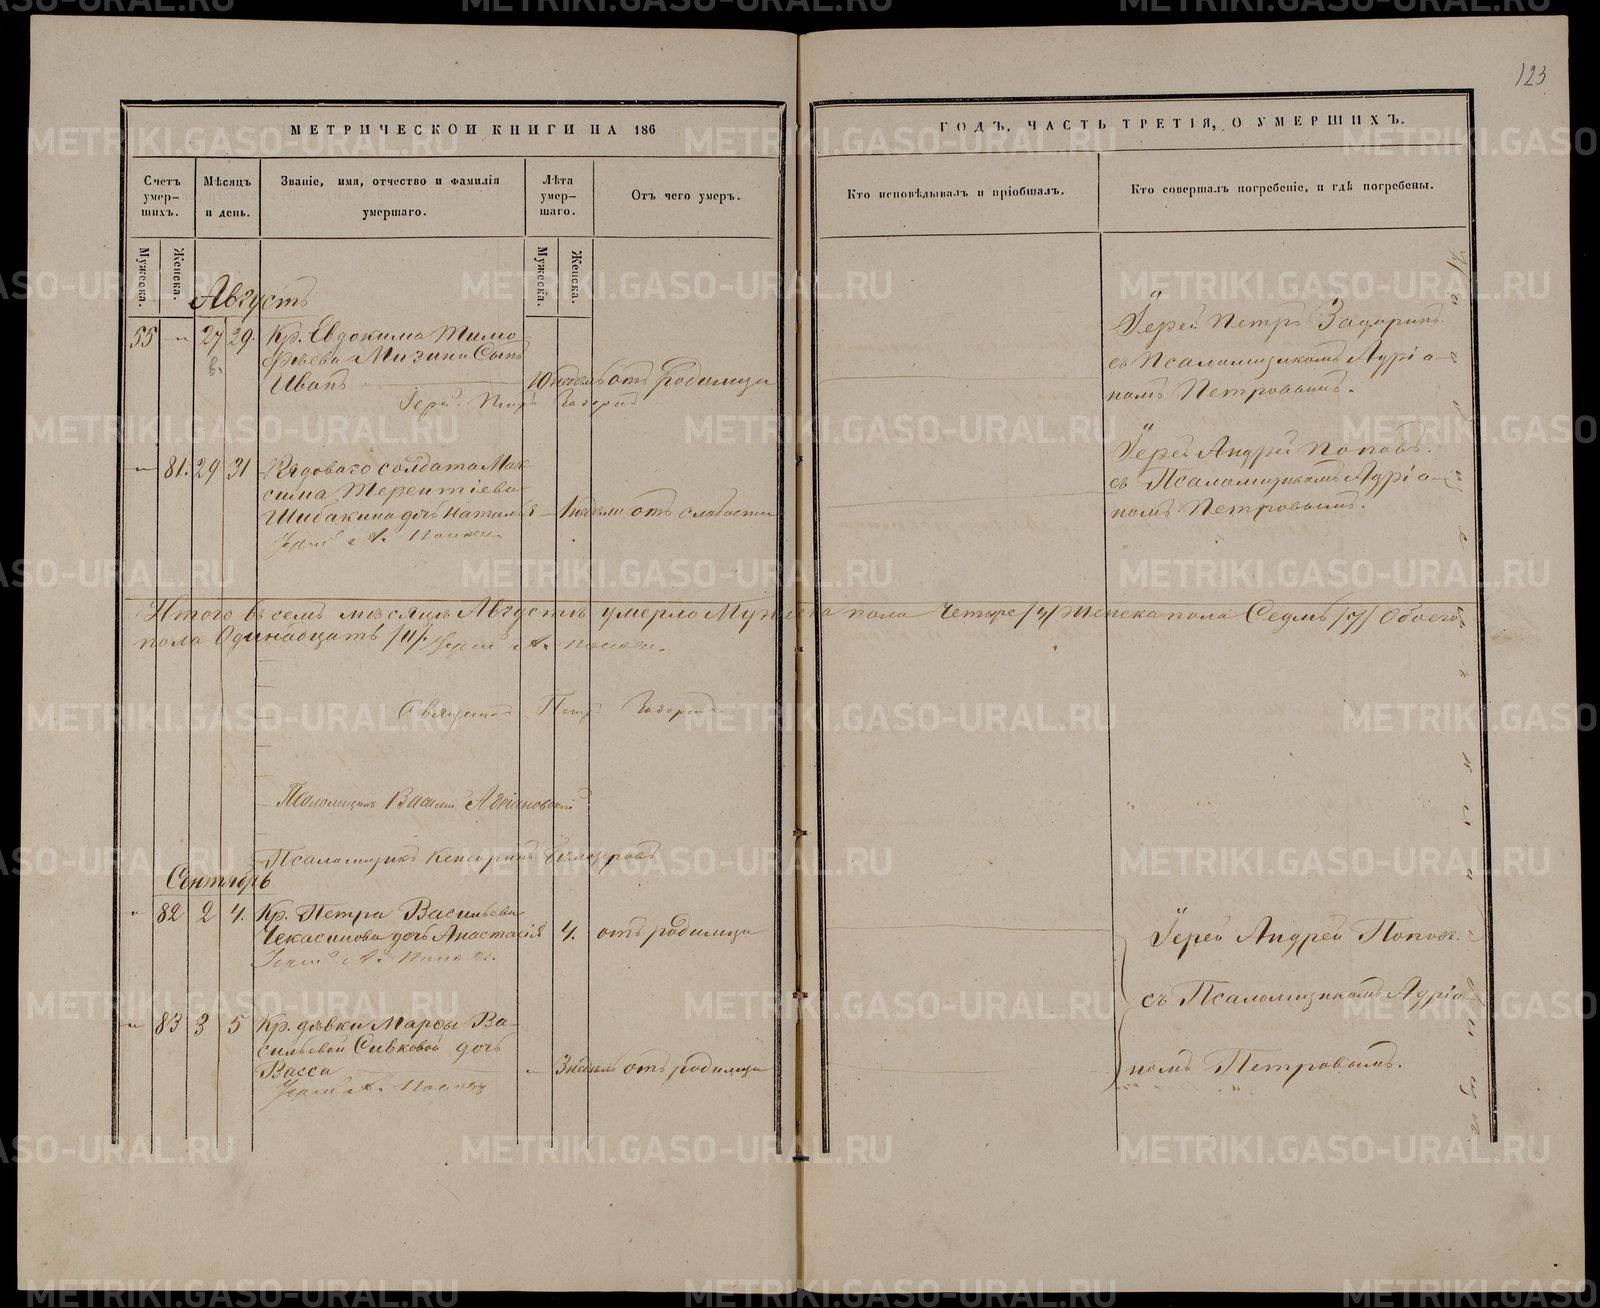 123
МЕТРИЧЕСКОЙ КНИГИ НА 186
ГОДЪ, ЧАСТЬ ТРЕТІЯ, О УМЕРШИХЪ.
Счетъ умер-
шихъ.
Мѣсяцъ
и день.
Званіе, имя, отчество и фамилія
умершаго.
Лѣта
умер-
шаго.
Отъ чего умеръ.
Кто исповѣдывалъ и пріобщалъ.
Кто совершалъ погребеніе, и гдѣ погребены.
Мужеска.
Женска.
Мужеска.
Женска.
Августъ
55 " 27 29. Кр. Евдокима Тимо-
фѣева Мизина Сынъ
Иванъ 10 недѣль отъ родимца
Іерей Петръ
Іерей Петръ
съ Псаломщикомъ Адріа-
номъ Петровымъ.
" 81. 29 31 Рядоваго солдата Мак-
сима Терентіева
Шибакина дочь Наталья 1 недѣли отъ слабости
Іерей А. Поповъ.
Іерей Андрей Поповъ.
съ Псаломщикомъ Адріа-
номъ Петровымъ.
Итого въ семъ мѣсяцѣ Августѣ умерло Мужеска пола Четыре /4/ Женска пола Седмь /7/ Обоего
пола Одинадцать /11/. Іерей А. Поповъ.
Священникъ Петръ
Псаломщикъ Василій
Псаломщикъ
Сентябрь
" 82 2 4. Кр. Петра Васильева
Чекасинова дочь Анастасія 4. отъ родимца
Іерей А. Поповъ.
" 83 3 5 Кр. дѣвки Марѳы Ва-
сильевой Сивковой дочь
Васса 3 недѣль отъ родимца
Іерей А. Поповъ
Іерей Андрей Поповъ.
съ Псаломщикомъ Адріа-
номъ Петровымъ.
METRIKI.GASO-URAL.RU